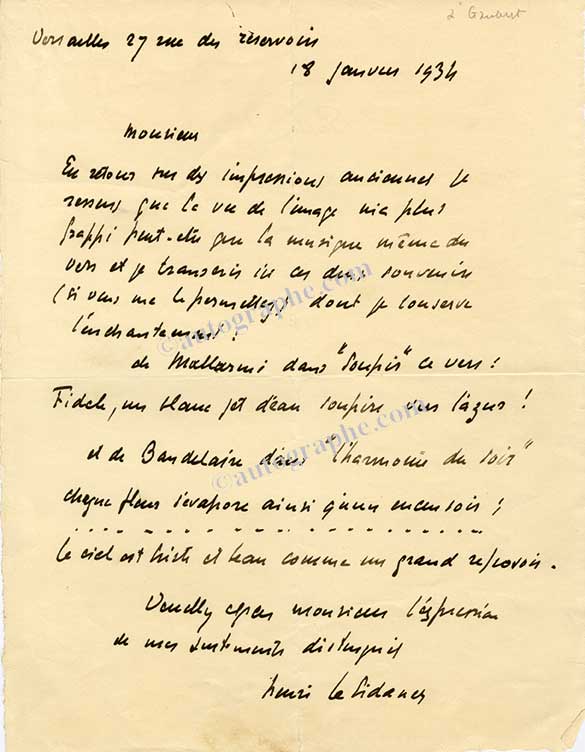 à Gaubert
Versailles 27 rue des réservoirs
18 janvier 1934
Monsieur
En retour sur des impressions anciennes je
ressens que la vue de l'image m'a plus
frappé peut-être que la musique même du
vers et je transcris ici ces deux souvenirs
(si vous me le permettez) dont je conserve
l'enchantement !
de Mallarmé dans "Soupir" ce vers :
Fidèle, un blanc jet d'eau soupire vers l'azur !
et de Baudelaire dans "l'harmonie du soir"
chaque fleur s'évapore ainsi qu'un encensoir ;
Le ciel est triste et beau comme un grand reposoir.
Veuillez agréer monsieur l'expression
de mes sentiments distingués
henri le Sidaner
©autographe.com
©autographe.com